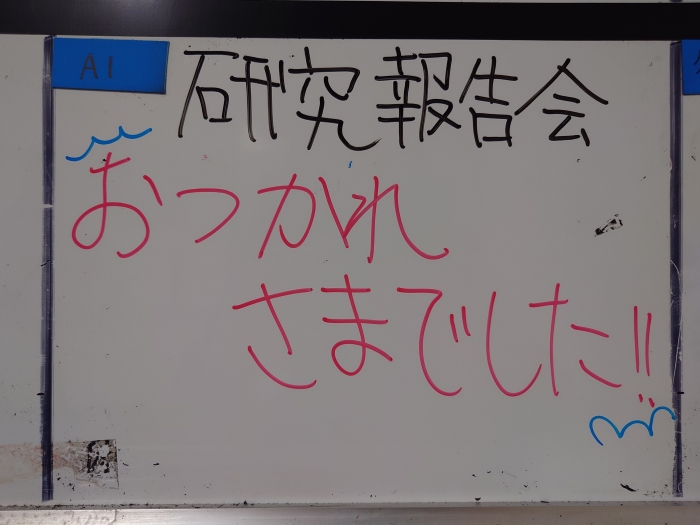 A1
研究報告会
おつかれ
さまでした!!